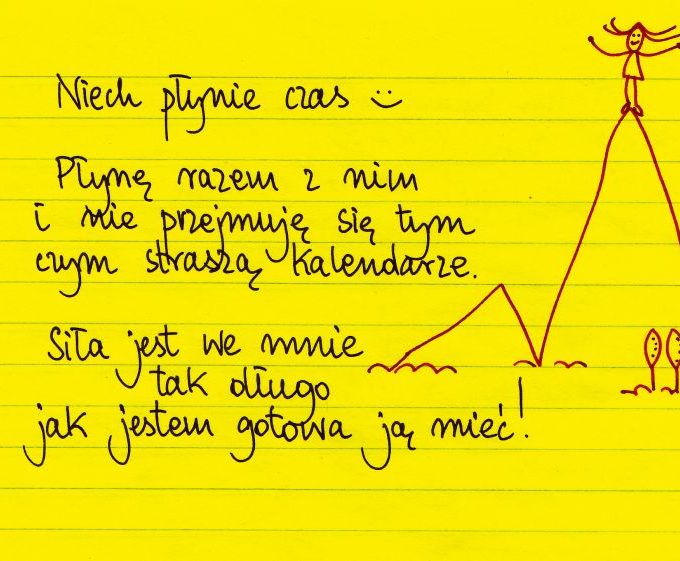 Niech płynie czas :)
Płynę razem z nim
i nie przejmuję się tym
czym straszą kalendarze.
Siła jest we mnie
tak długo
jak jestem gotowa ją mieć!